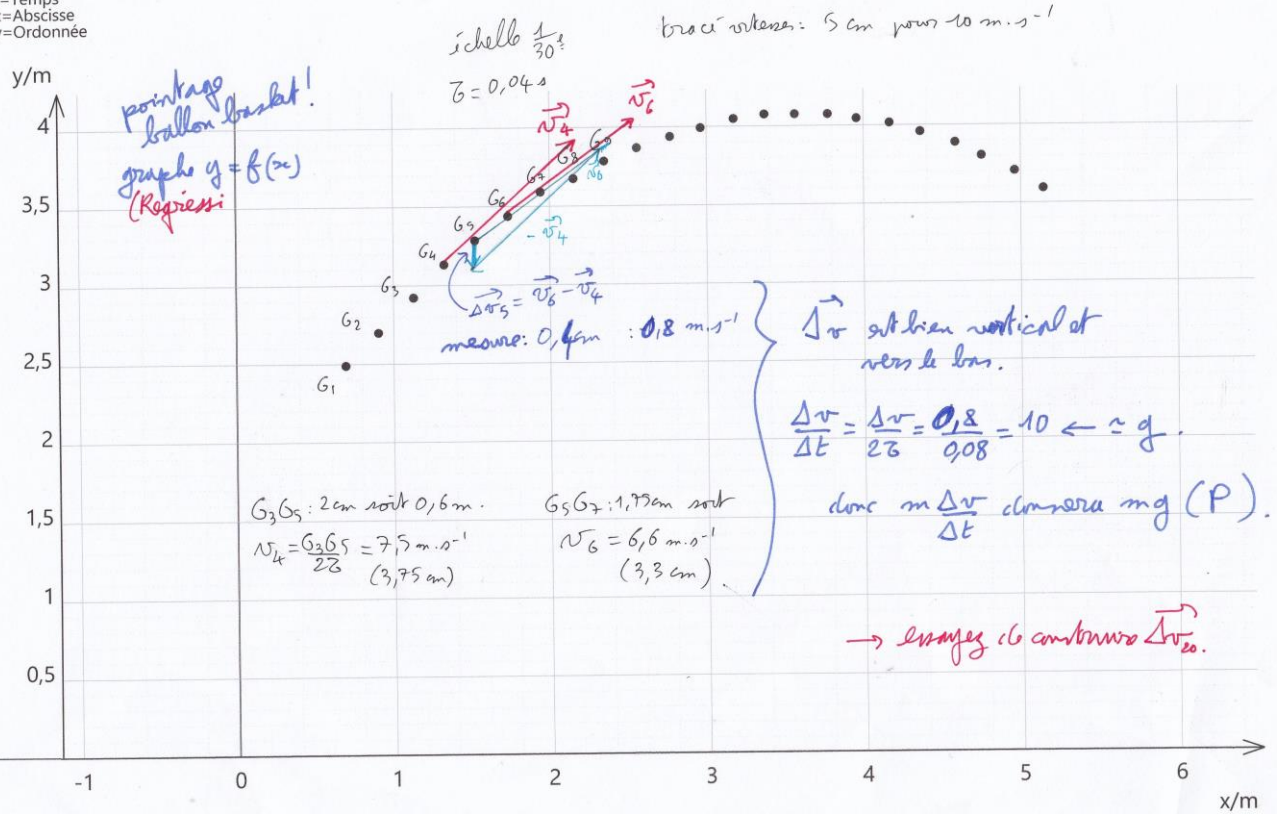 =Temps
=Abscisse
=Ordonnée
échelle 1/30e
τ = 0,04 s
tracé vitesses : 5 cm pour 10 m.s⁻¹
y/m
pointage
ballon basket !
graphe y = f(x)
(Regressi
4
3,5
3
2,5
2
1,5
1
0,5
G1
G2
G3
G4
G5
G6
G7
G8
G9
v⃗4
v⃗6
v⃗6
- v⃗4
Δv⃗5 = v⃗6 - v⃗4
mesure : 0,4cm : 0,8 m.s⁻¹
Δv⃗ est bien vertical et
vers le bas.
Δv/Δt = Δv/2τ = 0,8/0,08 = 10 ← ≃ g.
donc m Δv/Δt donnera mg (P).
G3G5 : 2cm soit 0,6 m.
v4 = G3G5/2τ = 7,5 m.s⁻¹
(3,75 cm)
G5G7 : 1,75cm soit
v6 = 6,6 m.s⁻¹
(3,3 cm).
→ essayez de construire Δv⃗20.
-1 0 1 2 3 4 5 6
x/m